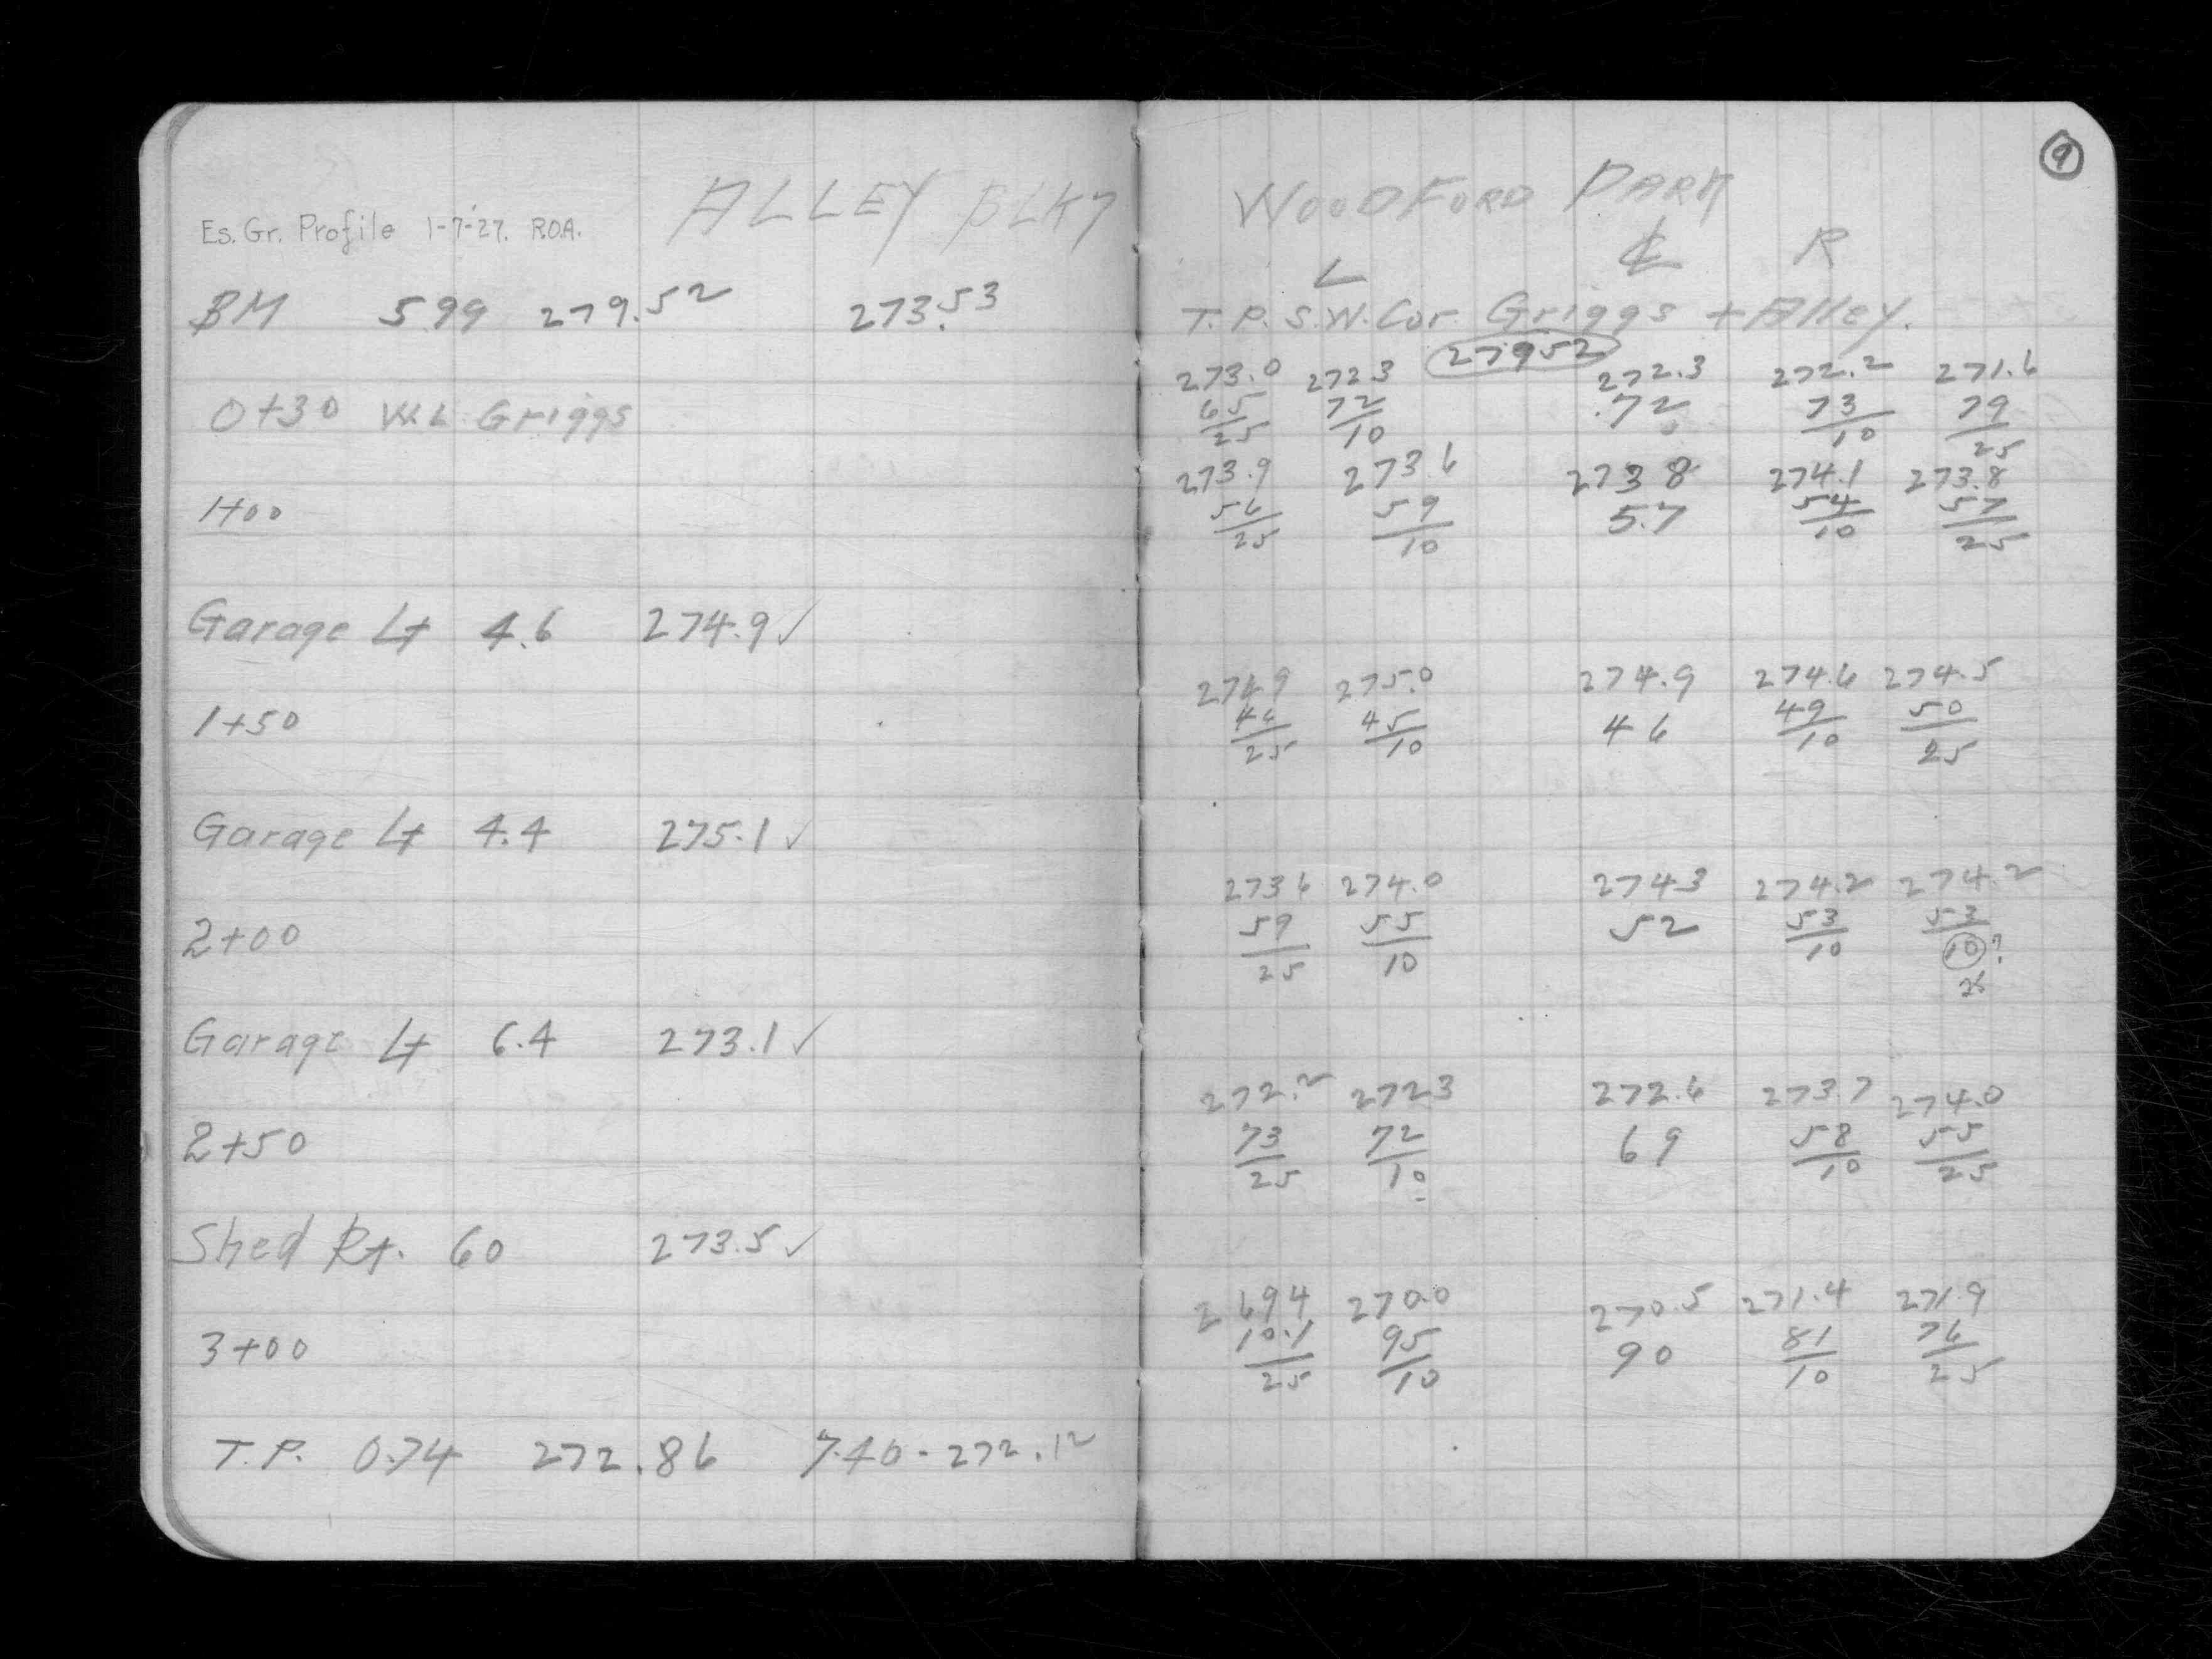 9
ALLEY BLK 7 WOODFORD PARK
Es. Gr. Profile 1-7-27. R.O.A.
L ℄ R
BM 599 279.52 273.53 T.P. S.W. Cor. Griggs + Alley.
27952
273.0 2723 272.3 272.2 271.6
0+30 W.L. Griggs 65/25 72/10 .72 73/10 79/25
273.9 273 6 273 8 274.1 273.8
1+00 56/25 59/10 5.7 54/10 57/25
Garage Lt 4.6 274.9✓
2749 275.0 274.9 274.6 274.5
1+50 46/25 45/10 46 49/10 50/25
Garage Lt 4.4 275.1✓
273 6 274.0 2743 274.2 274.2
2+00 59/25 55/10 52 53/10 53/10?
25
Garage Lt 6.4 273.1✓
272.2 2723 272.6 273.7 274.0
2+50 73/25 72/10 69 58/10 55/25
Shed Rt. 60 273.5✓
2694 2700 270.5 271.4 271.9
3+00 10.1/25 95/10 90 81/10 76/25
T.P. 0.74 272.86 7.40 - 272.12